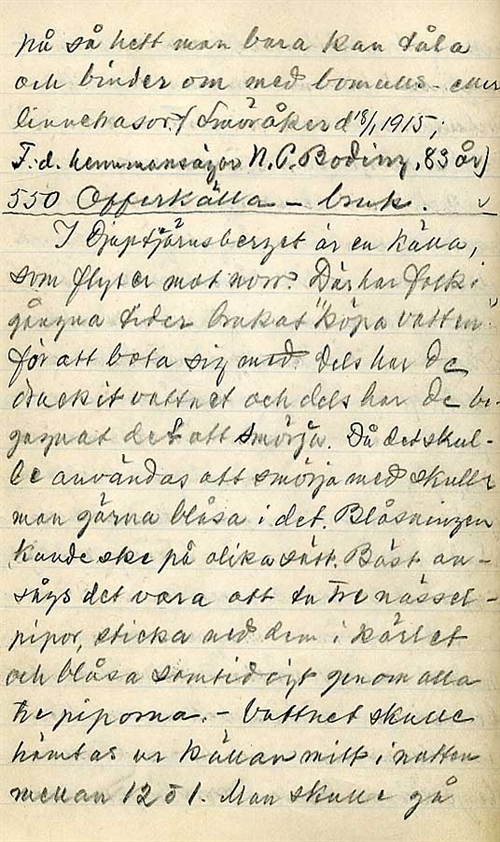 på så hett man bara kan tåla
och binder om med bomulls- eller
linnetrasor. (Smöråker d 18/1 1915;
F.d. hemmansägar N. P. Boding, 83 år)
550 Offerkälla – bruk. v
I Djuptjärnsberget är en källa,
som flyter mot norr. Där har folk i
gångna tider brukat "köpa vatten"
för att bota sig med. Dels har de
druckit vattnet och dels har de be-
gagnat det att smörja. Då det skul-
le användas att smörja med skulle
man gärna blåsa i det. Blåsningen
kunde ske på olika sätt. Bäst an-
sågs det vara att ta tre nässel-
pipor, sticka ned dem i kärlet
och blåsa samtidigt genom alla
tre piporna. – Vattnet skulle
hämtas ur källan mitt i natten
mellan 12 o 1. Man skulle gå